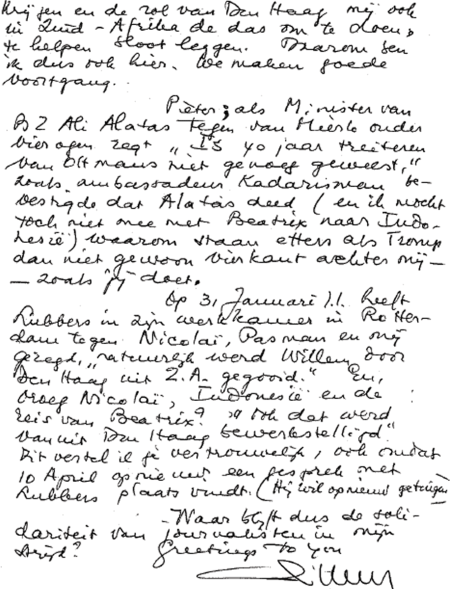 krijgen en de rol van Den Haag mij ook
in Zuid-Afrika de das om te doen,
te helpen bloot leggen. Daarom ben
ik dus ook hier. We maken goede
voortgang.
Pieter; als Minister van
BZ Ali Alatas tegen van Mierlo onder
vier ogen zegt „Is 40 jaar treiteren
van Oltmans niet genoeg geweest,"
zoals ambassadeur Kadarisman be-
vestigde dat Alatas deed (en ik mocht
toch niet mee met Beatrix naar Indo-
nesië) waarom staan etters als Tromp
dan niet gewoon vierkant achter mij—
— zoals jij doet.
Op 31 Januari j.l. heeft
Lubbers in zijn werkkamer in Rotter-
dam tegen Nicolaï, Pasman en mij
gezegd, „natuurlijk werd Willem door
Den Haag uit Z.A. gegooid." En,
vroeg Nicolaï, Indonesië en de
reis van Beatrix? „Ook dat werd
vanuit Den Haag bewerkstelligd"
Dit vertel ik je vertrouwelijk, ook omdat
10 April opnieuw een gesprek met
Lubbers plaats vindt. (Hij wil opnieuw getuigen)
—Waar blijft dus de soli-
dariteit van journalisten in mijn
strijd? Greetings to you
Willem